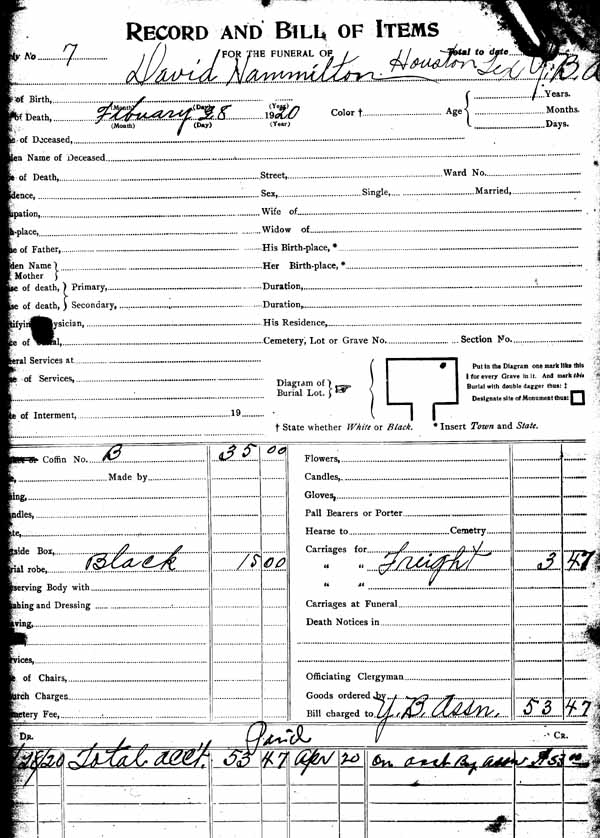 RECORD AND BILL OF ITEMS
ly No 7 FOR THE FUNERAL OF Total to date
David Hammilton Houston Tex Y. B. A
of Birth, (Month) (Day) (Year) Years.
of Death, Febuary 28 1920 Color † Age Months.
(Month) (Day) (Year) Days.
e of Deceased,
den Name of Deceased
e of Death, Street, Ward No.
idence, Sex, Single, Married,
upation, Wife of
h-place, Widow of
e of Father, His Birth-place, *
den Name Mother Her Birth-place, *
se of death, Primary, Duration,
se of death, Secondary, Duration,
tifyin ysician, His Residence,
ce of al, Cemetery, Lot or Grave No. Section No.
eral Services at
e of Services, Diagram of Burial Lot.
Put in the Diagram one mark like this
I for every Grave in it. And mark this
Burial with double dagger thus: ‡
Designate site of Monument thus:
e of Interment, 19
† State whether White or Black. * Insert Town and State.
Coffin No. B 35 00 Flowers,
Made by Candles,
ing, Gloves,
ndles, Pall Bearers or Porter
te, Hearse to Cemetry
side Box, Carriages for
rial robe, Black 15 00 " " Freight 3 47
serving Body with " "
shing and Dressing Carriages at Funeral
aving, Death Notices in
vices,
e of Chairs, Officiating Clergyman
urch Charges Goods ordered by
metery Fee, Bill charged to Y. B. Assn. 53 47
DR. Paid CR.
28/20 Total acc't. 53 47 Apr 20 On acct By assn $53.00